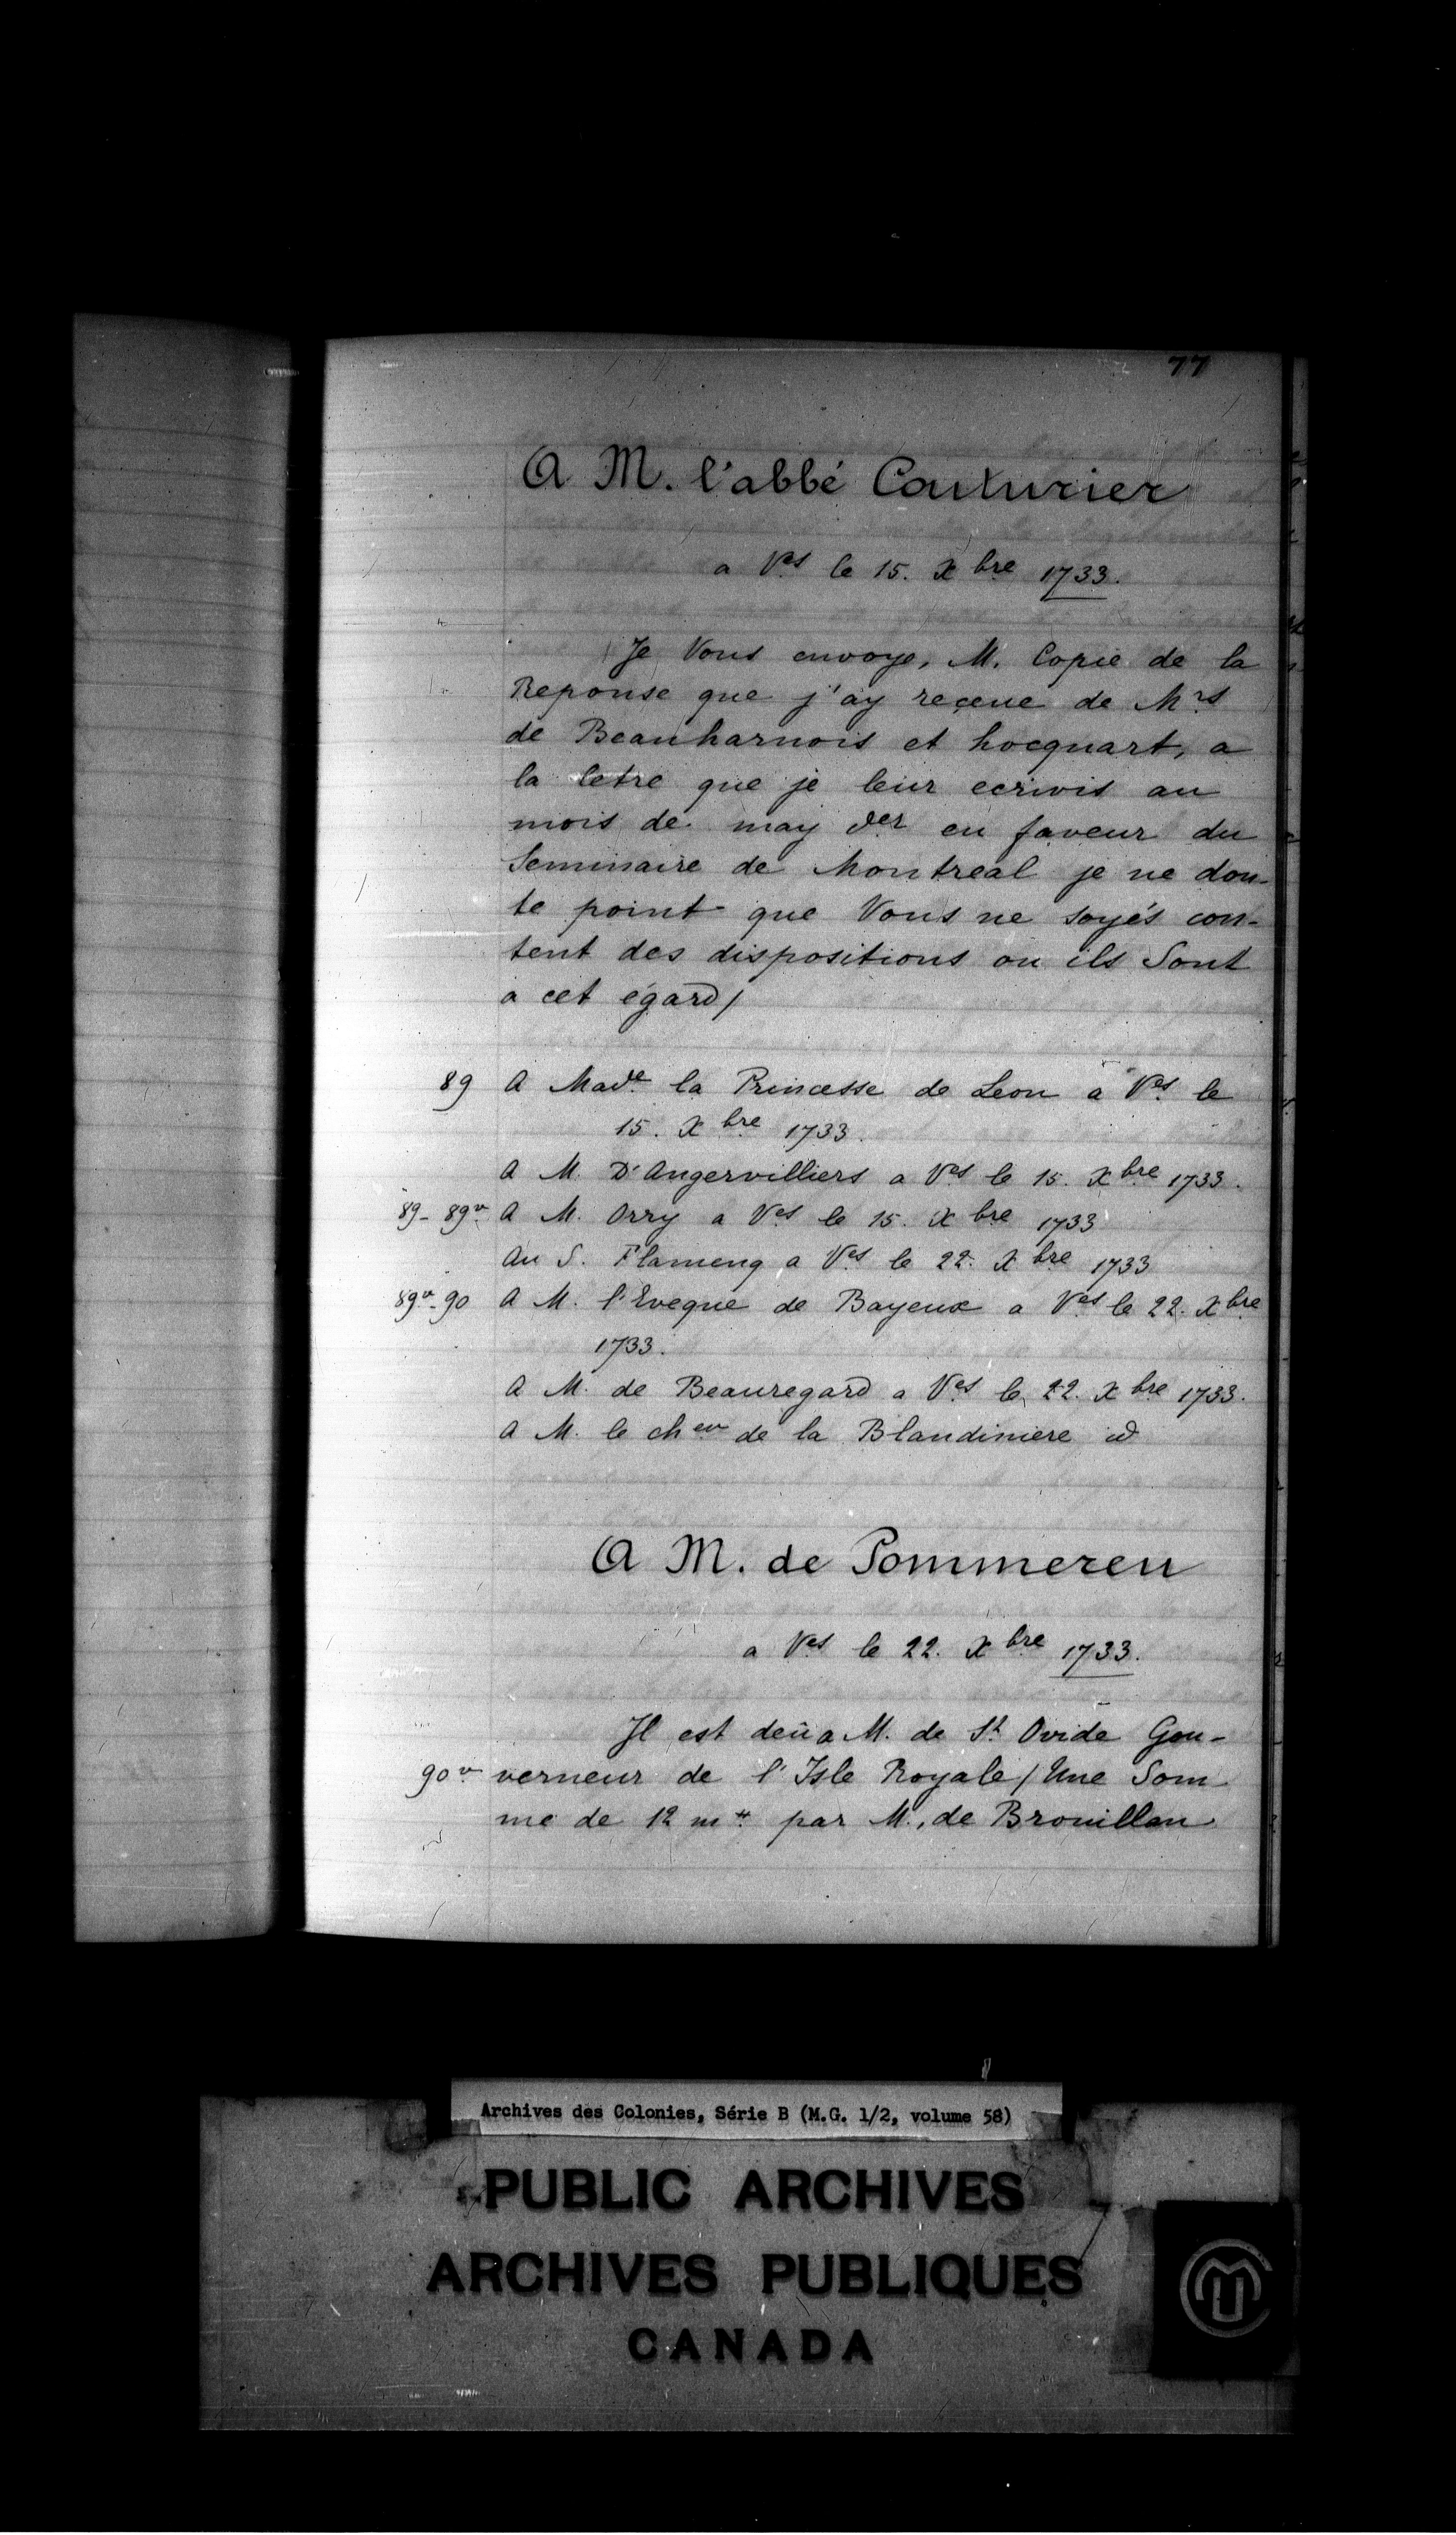 77
A M. l'abbé Couturier
a Ves le 15. Xbre 1733.
Je Vous envoye, M. Copie de la
Reponse que j'ay reçeue de Mrs
de Beauharnois et hocquart, a
la letre que je leur ecrivis au
mois de may der en faveur du
Seminaire de Montreal je ne dou-
te point que Vous ne soyés con-
tent des dispositions ou ils Sont
a cet égard/
89 A Made la Princesse de Leon a Ves le
15. Xbre 1733.
A M. D'Angervilliers a Ves le 15. Xbre 1733.
89-89v A M. Orry a Ves le 15. Xbre 1733
Au S. Flameng a Ves le 22. Xbre 1733
89v-90 A M. l'Eveque de Bayeux a Ves le 22. Xbre
1733.
A M. de Beauregard a Ves le 22. Xbre 1733.
A M. le cher de la Blandiniere id
A M. de Pommereu
a Ves le 22. Xbre 1733.
Il est deû a M. de St Ovide Gou-
90v verneur de l'Isle Royale / Une Som
me de 12 m# par M. de Brouillan
Archives des Colonies, Série B (M.G. 1/2, volume 58)
PUBLIC ARCHIVES
ARCHIVES PUBLIQUES
CANADA